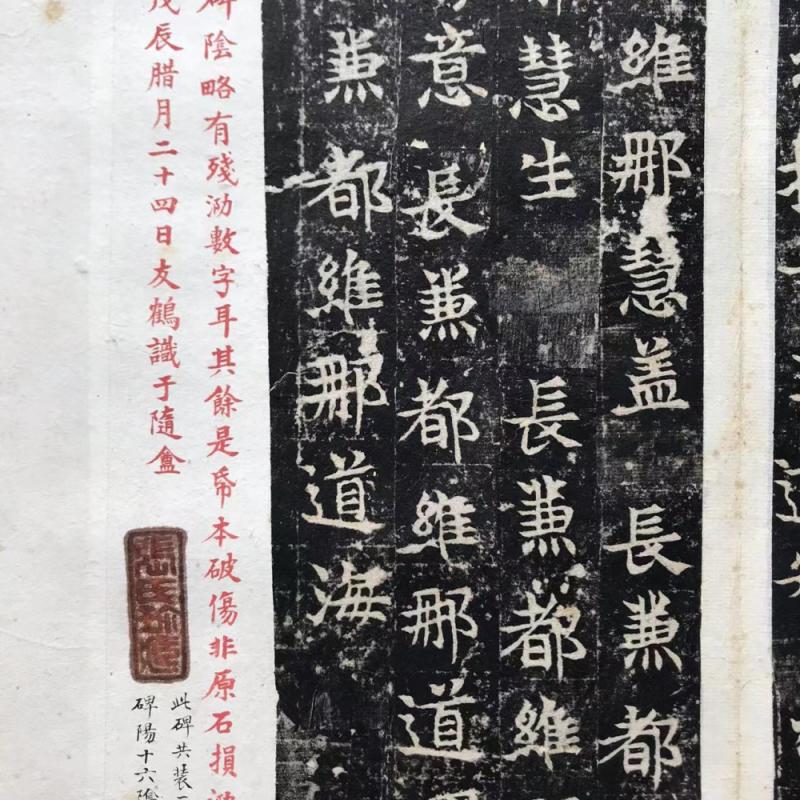 維那慧盖 長兼都
慧生 長兼都維
意長兼都維那道
兼都維那道海
碑陰略有殘泐數字耳其餘是帋本破傷非原石損泐
戊辰腊月二十四日友鶴識于隨盦
此碑共装
碑陽十六陰